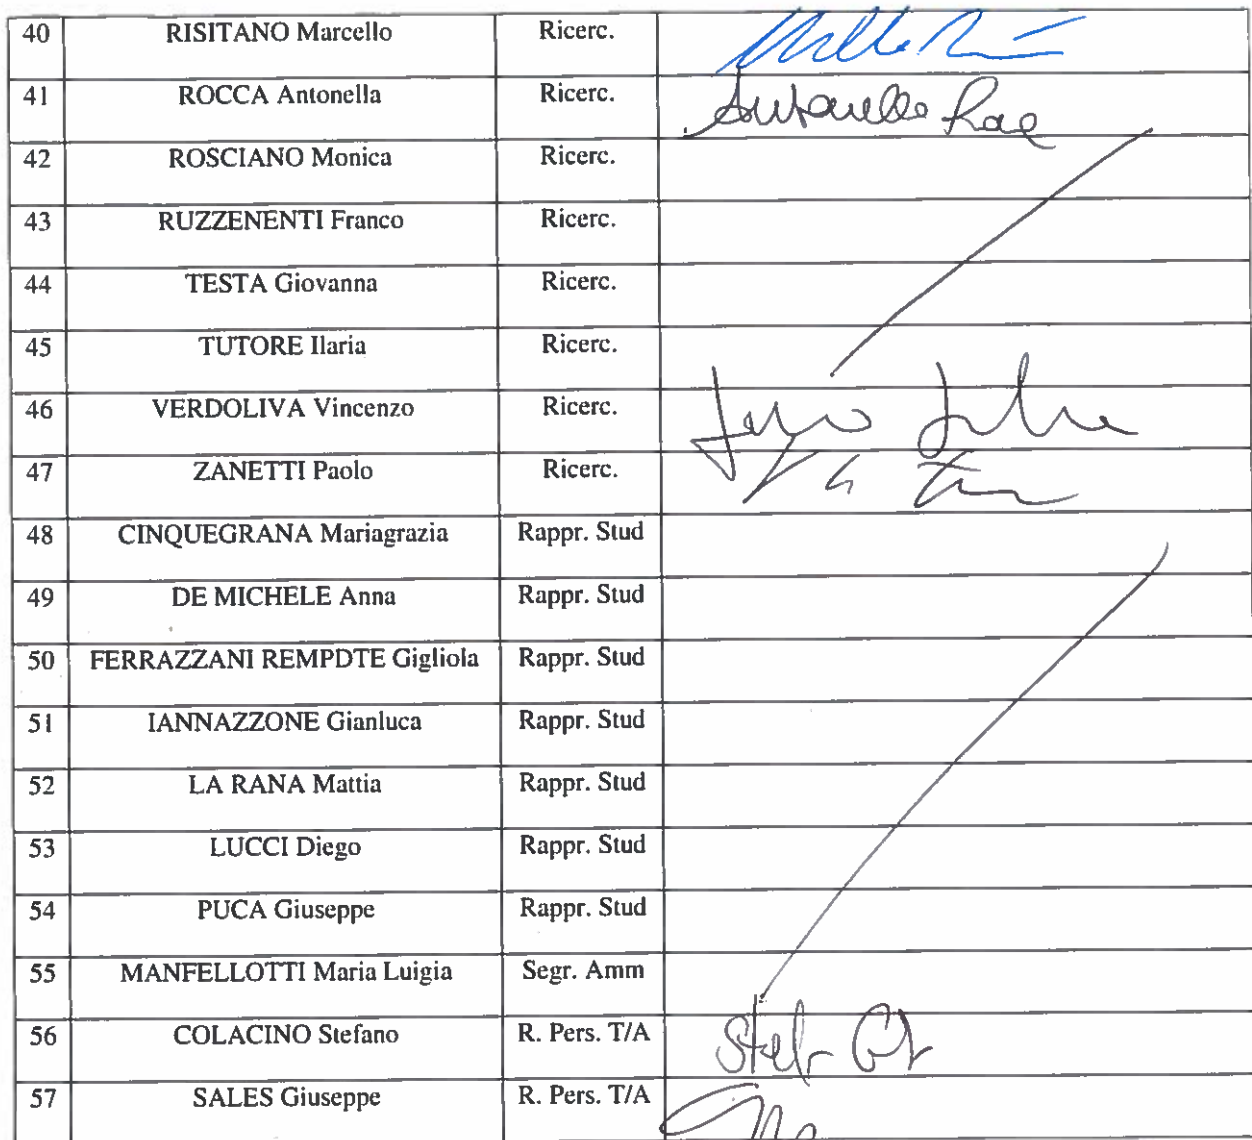 40 RISITANO Marcello Ricerc.
41 ROCCA Antonella Ricerc. Antonella Rocca
42 ROSCIANO Monica Ricerc.
43 RUZZENENTI Franco Ricerc.
44 TESTA Giovanna Ricerc.
45 TUTORE Ilaria Ricerc.
46 VERDOLIVA Vincenzo Ricerc.
47 ZANETTI Paolo Ricerc.
48 CINQUEGRANA Mariagrazia Rappr. Stud
49 DE MICHELE Anna Rappr. Stud
50 FERRAZZANI REMPDTE Gigliola Rappr. Stud
51 IANNAZZONE Gianluca Rappr. Stud
52 LA RANA Mattia Rappr. Stud
53 LUCCI Diego Rappr. Stud
54 PUCA Giuseppe Rappr. Stud
55 MANFELLOTTI Maria Luigia Segr. Amm
56 COLACINO Stefano R. Pers. T/A
57 SALES Giuseppe R. Pers. T/A